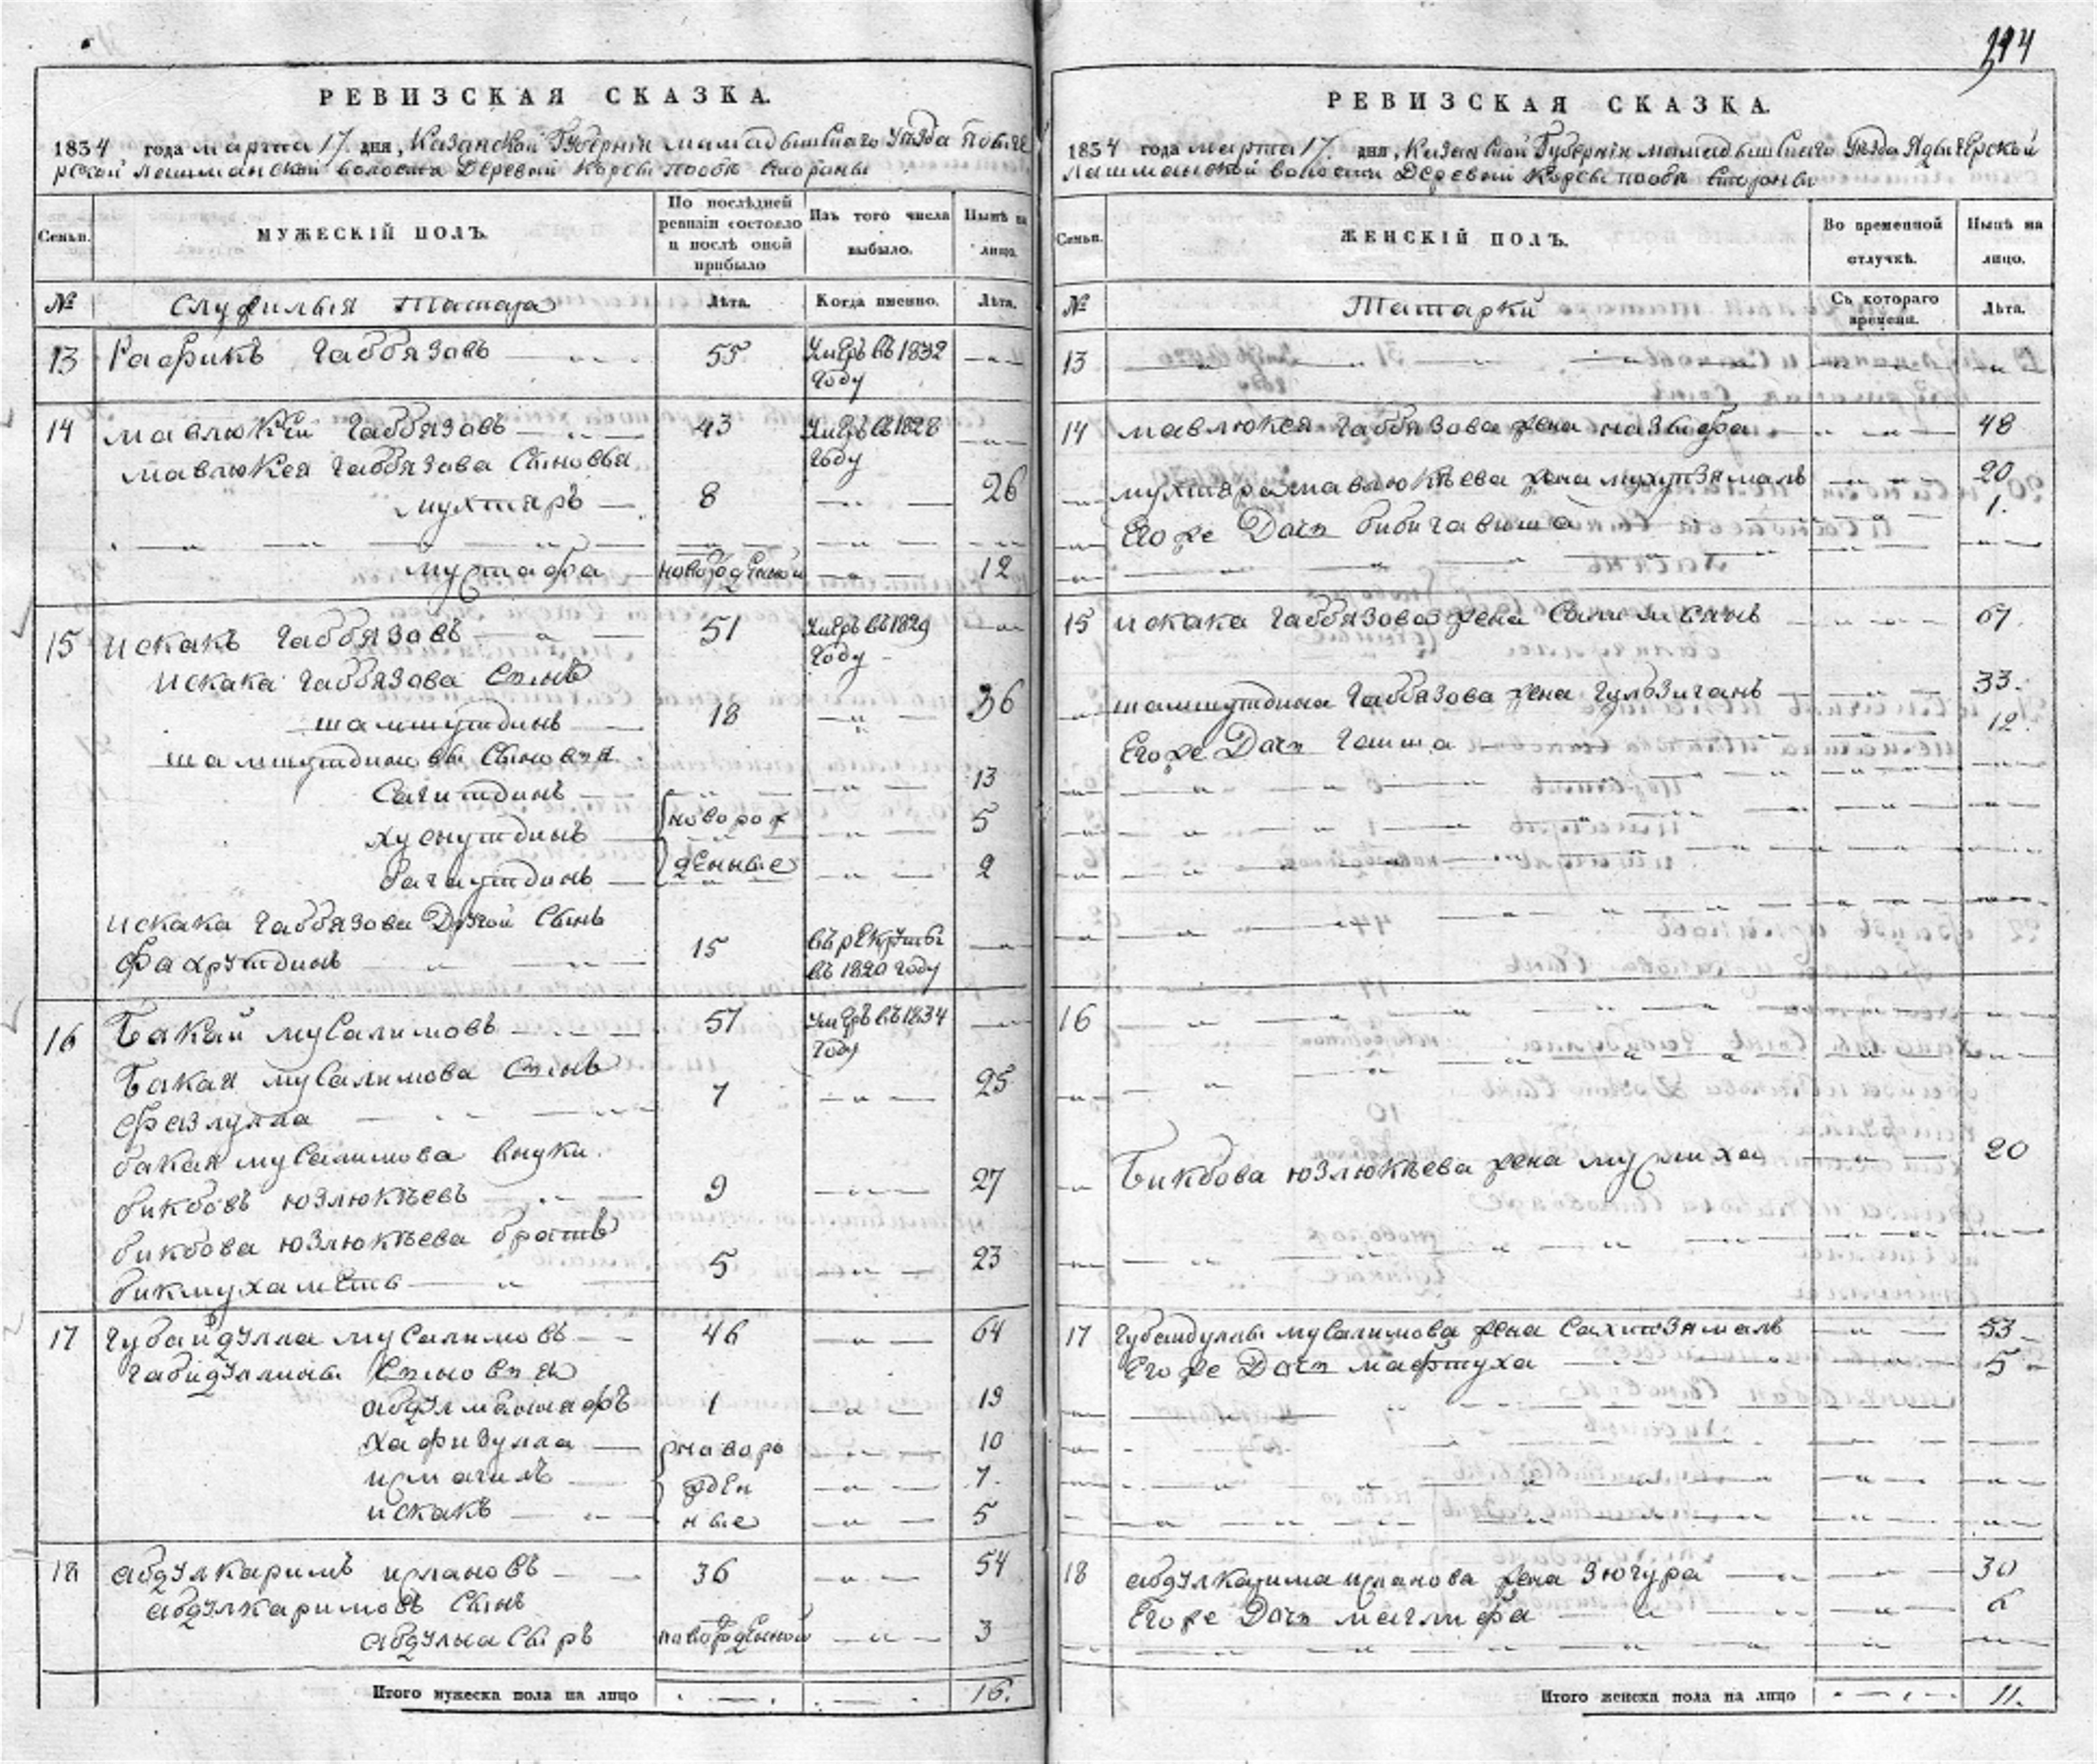 394
РЕВИЗСКАЯ СКАЗКА.
1834 года марта 17. дня, Казанской Губернїи мамадышскаго Уѣзда
рской лашманской волости Деревни Корсы пообѣ стороны
Семьи.
МУЖЕСКІЙ ПОЛЪ.
По послѣдней ревизіи состояло и послѣ оной прибыло
Изъ того числа выбыло.
Нынѣ на лицо.
№
служилыя татара
Лѣта.
Когда именно.
Лѣта.
13 Рафикъ Габбязовъ 55 Умеръ въ 1832
году
14 мавлюкей Габбязовъ 43 Умеръ въ 1828
мавлюкея Габбязова Сыновья году
мухтяръ 8 26
мустафа новорожденной 12
15 искакъ Габбязовъ 51 Умеръ въ 1829
году
искака Габбязова Сынъ
шамшутдинъ 18 36
шамшутдиновы Сыновья
Сагитдинъ 13
хуснутдинъ новорож 5
багаутдинъ денные 2
искака Габбязова Другой Сынъ
фахрутдинъ 15 въ рекруты
въ 1820 году
16 Бакай мусалимовъ 57 Умеръ въ 1834
году
Бакая мусалимова Сынъ 7 25
фазлулла
бакая мусалимова внуки.
бикбовъ юзлюкѣевъ 9 27
бикбова юзлюкѣева братъ
бикмухаметъ 5 23
17 Губайдулла мусалимовъ 46 64
Сыновья
1 19
хафизулла новоро 10
исмагилъ жден 7.
искакъ ные 5
18 абдулкаримъ 36 54
абдулкаримовъ Сынъ
абдулнасыръ новорожденной 3
Итого мужеска пола на лицо 16.
РЕВИЗСКАЯ СКАЗКА.
1834 года марта 17. дня, Казанской Губернїи мамадышскаго Уѣзда
лашманской волости Деревни Корсы пообѣ стороны
Семьи.
ЖЕНСКІЙ ПОЛЪ.
Во временной отлучкѣ.
Нынѣ на лицо.
№
Татарки
Съ котораго времени.
Лѣта.
13
14 мавлюкея Габбязова жена назыфа 48
мухтяра мавлюкѣева жена мухупзямалъ 20
Его же Дочь бибигавиша 1.
15 искака Габбязова жена 67.
шамшутдина Габбязова жена Гульзиганъ 33.
Его же Дочь Гайша 12.
16
Бикбова юзлюкѣева жена муслиха 20
17 Губайдуллы мусалимова жена 53
Его же Дочь мафтуха 5
18 абдулкарима жена Зюгура 30
Его же Дочь маглифа 6
Итого женска пола на лицо 11.